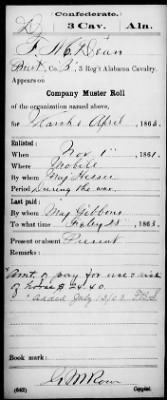 Confederate.
D 3 Cav. Ala.
Pvt., Co. B, 3 Reg't Alabama Cavalry.
Appears on
Company Muster Roll
of the organization named above,
for March & April, 1863.
Enlisted:
When Nov 1, 1861.
Where Mobile
By whom Maj Hesse
Period During the war.
Last paid:
By whom Maj Gibbons
To what time Feby 28, 1863.
Present or absent Present
Remarks:
Amt of pay for use & risk
of horse $24.40.
added July
Book mark:
(642) Copyist.